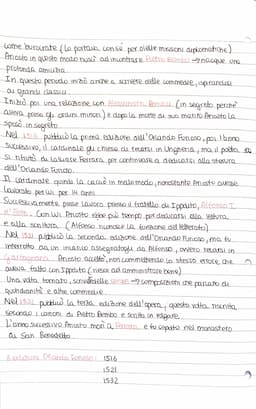 come burocrate (lo portava con sé per delle missioni diplomatiche)
Ariosto in questo modo riuscì ad incontrare Pietro Bembo → nacque una
profonda amicizia.
In questo periodo iniziò anche a scrivere delle commedie, ispirandosi
ai grandi classici.
Iniziò poi una relazione con Alessandra Benucci (in segreto perché
aveva preso gli ordini minori) e dopo la morte di suo marito Ariosto la
sposò in segreto.
Nel 1516 pubblicò la prima edizione dell'Orlando Furioso, poi l'anno
successivo, il cardinale gli chiese di trasferirsi in Ungheria, ma il poeta
si rifiutò di lasciare Ferrara, per continuare a dedicarsi alla stesura
dell'Orlando Furioso.
Il cardinale quindi lo cacciò in malo modo, nonostante Ariosto avesse
lavorato per lui per 14 anni.
Successivamente, prese lavoro presso il fratello di Ippolito, Alfonso I
d'Este. Con lui Ariosto ebbe più tempo per dedicarsi alla lettura
e alla scrittura. (Alfonso riconobbe la funzione del letterato)
Nel 1521 pubblicò la seconda edizione dell'Orlando Furioso, ma fu
interrotto da un incarico assegnatogli da Alfonso, ovvero recarsi in
Garfagnana. Ariosto accettò, non commettendo lo stesso errore che
aveva fatto con Ippolito (riesce ad amministrare bene)
Una volta tornato, scrive delle satire → composizioni che parlano di
quotidianità e altre commedie.
Nel 1532 pubblicò la terza edizione dell'opera, questa volta riscritta,
secondo i canoni di Pietro Bembo e scritta in volgare.
L'anno successivo Ariosto morì a Ferrara e fu sepolto nel monastero
di San Benedetto.
3 edizioni Orlando Furioso: 1516
1521
1532